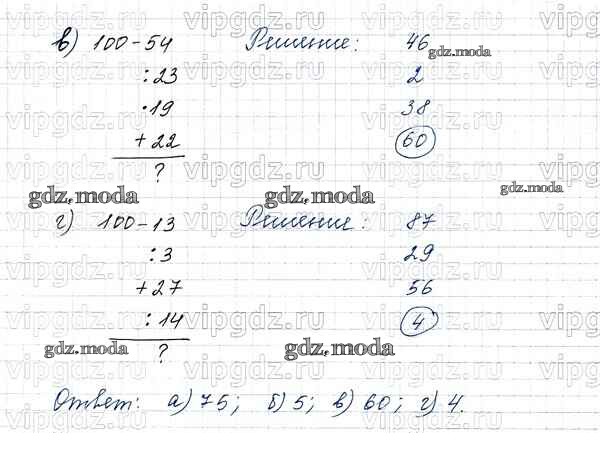 в) 100 - 54 Решение: 46
: 23 2
· 19 38
+ 22 60
?
г) 100 - 13 Решение: 87
: 3 29
+ 27 56
: 14 4
?
Ответ: а) 75; б) 5; в) 60; г) 4.
vipgdz.ru
gdz.moda